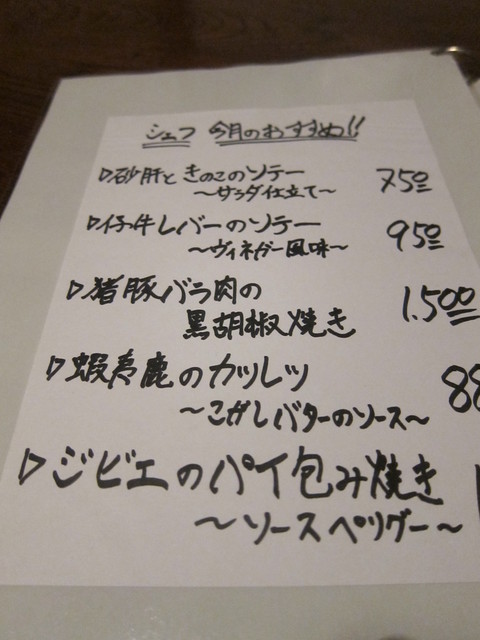 シェフ 今月のおすすめ!!
▷砂肝ときのこのソテー 750
〜サラダ仕立て〜
▷仔牛レバーのソテー 950
〜ヴィネガー風味〜
▷猪豚バラ肉の
黒胡椒焼き 1.500
▷蝦夷鹿のカツレツ 88
〜こがしバターのソース〜
▷ジビエのパイ包み焼き
〜ソースペリグー〜